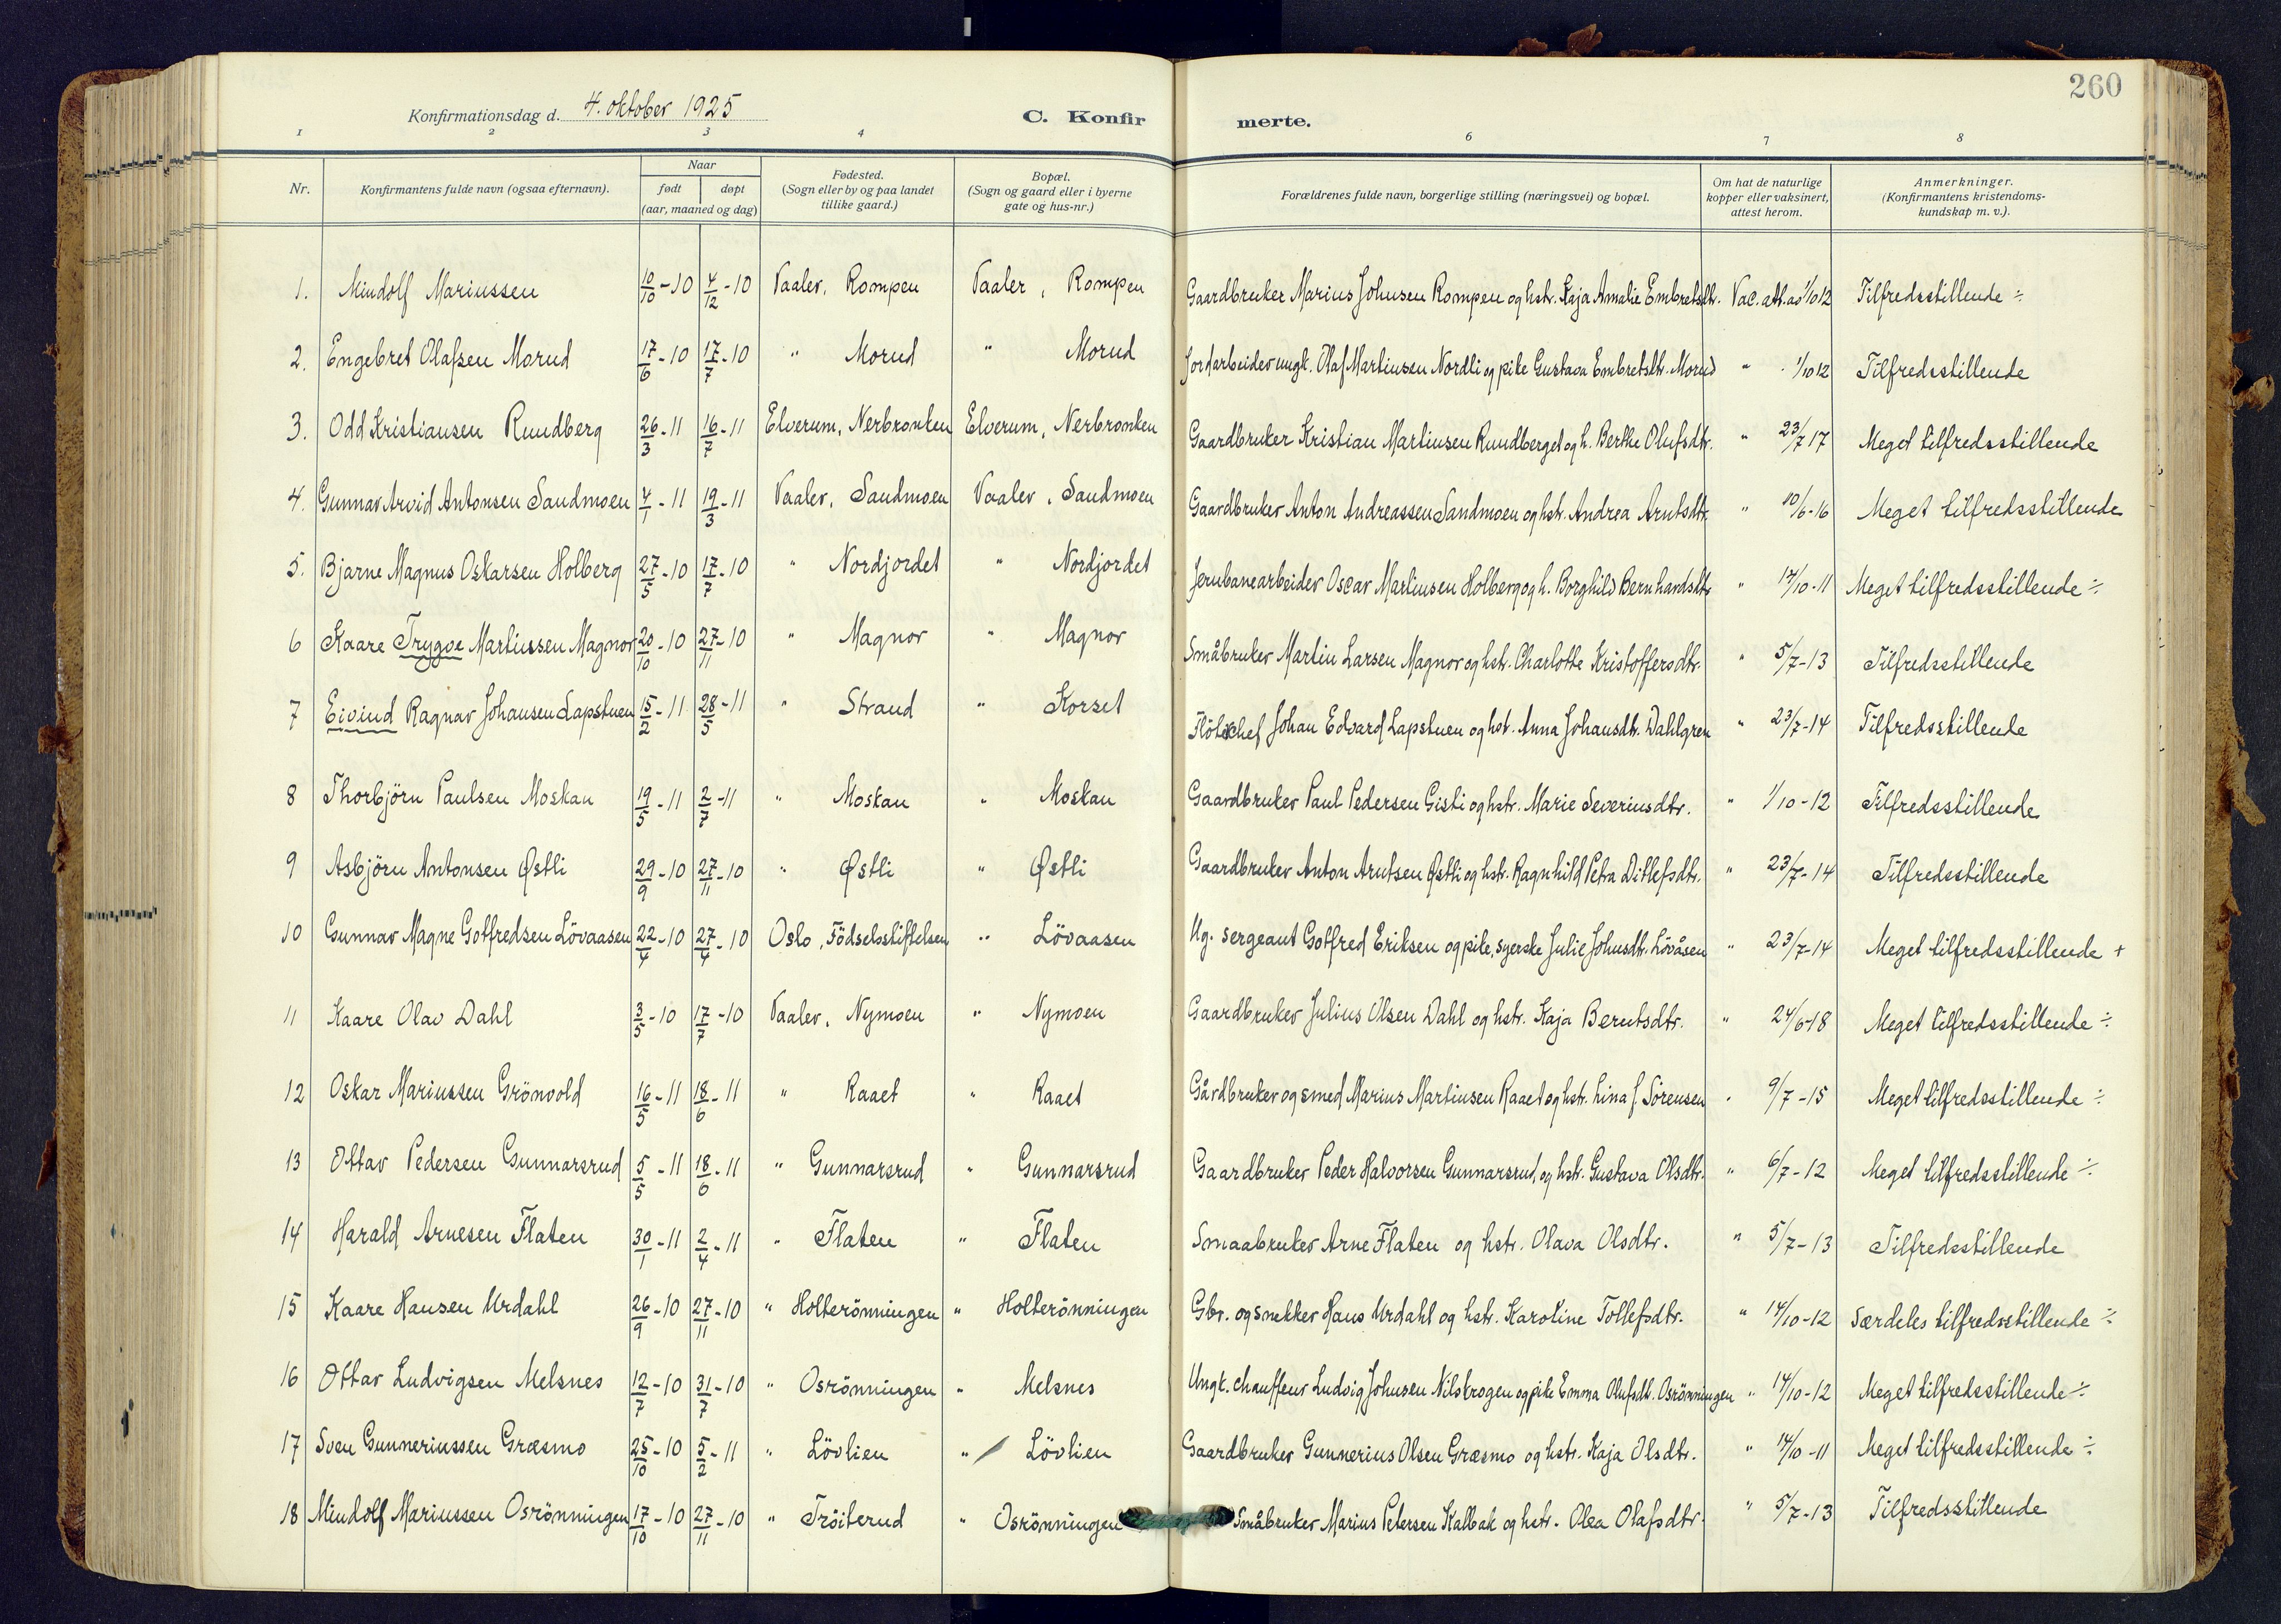 260
Konfirmationsdag d. 4. oktober 1925 C. Konfirmerte.
1 2 3 4 6 7 8
Nr. Konfirmantens fulde navn (ogsaa efternavn). Naar født døpt (aar, maaned og dag) Fødested. (Sogn eller by og paa landet tillike gaard.) Bopæl. (Sogn og gaard eller i byerne gate og hus-nr.) Forældrenes fulde navn, borgerlige stilling (næringsvei) og bopæl. Om hat de naturlige kopper eller vaksinert, attest herom. Anmerkninger. (Konfirmantens kristendoms-kundskap m. v.).
1. Mindolf Mariussen 10/10-10 4/12-10 Vaaler, Rompen Vaaler, Rompen Gaardbruker Marius Johnsen Rompen og hstr. Kaja Amalie Embretsdtr. Vac. att. av 1/10 12 Tilfredsstillende ÷
2. Engebret Olafsen Morud 17/6-10 17/7-10 " Morud " Morud Jordarbeider ungk. Olaf Martinsen Nordli og pike Gustava Embretsdtr. Morud " 1/10 12 Tilfredsstillende
3. Odd Kristiansen Rundberg 26/3-11 16/7-11 Elverum, Nerbronken Elverum, Nerbronken Gaardbruker Kristian Martinsen Rundberget og h. Berthe Olufsdtr. " 23/7 17 Meget tilfredsstillende
4. Gunnar Arvid Antonsen Sandmoen 4/1-11 19/3-11 Vaaler, Sandmoen Vaaler, Sandmoen Gaardbruker Anton Andreassen Sandmoen og hstr. Andrea Arntsdtr. " 10/6-16 Meget tilfredsstillende
5. Bjarne Magnus Oskarsen Holberg 27/5-10 17/7-10 " Nordjordet " Nordjordet Jernbanearbeider Oscar Martinsen Holberg og h. Borghild Bernhardsdtr " 14/10-11 Meget tilfredsstillende ÷
6 Kaare Trygve Martinsen Magnor 20/10-10 27/11-10 " Magnor " Magnor Småbruker Martin Larsen Magnor og hstr. Charlotte Kristoffersdtr. " 5/7-13 Tilfredsstillende
7 Eivind Ragnar Johansen Lapstuen 15/2-11 28/5-11 " Strand " Korset Flötchef Johan Edvard Lapstuen og hst. Anna Johansdtr. Dahlgren " 23/7-14 Tilfredsstillende
8 Thorbjörn Paulsen Moskau 19/5-11 2/7-11 " Moskau " Moskau Gaardbruker Paul Pedersen Gisti og hstr. Marie Severinsdtr. " 1/10-12 Tilfredsstillende
9 Asbjörn Antonsen Østli 29/9-10 27/11-10 " Østli " Østli Gaardbruker Anton Arntsen Østli og hstr. Ragnhild Petra Ditlefsdtr. " 23/7-14 Tilfredsstillende
10 Gunnar Magne Gotfredsen Lövaasen 22/4-10 27/4-10 Oslo, Födselsstiftelsen " Lövaasen Ug. sergeant Gotfred Eriksen og pike, syerske Julie Johnsdtr. Lövåsen " 23/7-14 Meget tilfredsstillende +
11 Kaare Olav Dahl 3/5-10 17/7-10 Vaaler, Nymoen " Nymoen Gaardbruker Julius Olsen Dahl og hstr. Kaja Berntsdtr. " 24/6-18 Meget tilfredsstillende ÷
12 Oskar Mariussen Grönvold 16/5-11 18/6-11 " Raaet " Raaet Gårdbruker og smed Marius Martinsen Raaet og hstr. Lina J. Sörensen " 9/7-15 Meget tilfredsstillende ÷
13 Ottar Pedersen Gunnarsrud 5/5-11 18/6-11 " Gunnarsrud " Gunnarsrud Gaardbruker Peder Halvorsen Gunnarsrud, og hstr. Gustava Olsdtr. " 6/7-12 Meget tilfredsstillende ÷
14 Harald Arnesen Flaten 30/1-11 2/4-11 " Flaten " Flaten Smaabruker Arne Flaten og hstr. Olava Olsdtr. " 5/7-13 Tilfredsstillende
15 Kaare Hansen Urdahl 26/9-10 27/11-10 " Holterönningen " Holterönningen Gbr. og snekker Hans Urdahl og hstr. Karoline Tollefsdtr. " 14/10-12 Særdeles tilfredsstillende ÷
16 Ottar Ludvigsen Melsnes 12/7-10 31/7-10 " Osrönningen " Melsnes Ungk. chauffeur Ludvig Johnsen Nilskrogen og pike Emma Olufsdt. Osrönningen " 14/10-12 Meget tilfredsstillende ÷
17 Sven Gunneriussen Græsmo 25/10-10 5/2-11 " Lövlien " Lövlien Gaardbruker Gunnerius Olsen Græsmo og hstr. Kaja Olsdtr. " 14/10-11 Meget tilfredsstillende ÷
18 Mindolf Mariussen Osrönningen 17/10-10 27/11-10 " Tröiterud " Osrönningen Småbruker Marius Petersen Kalbak og hstr. Olea Olafsdtr. " 5/7-13 Tilfredsstillende